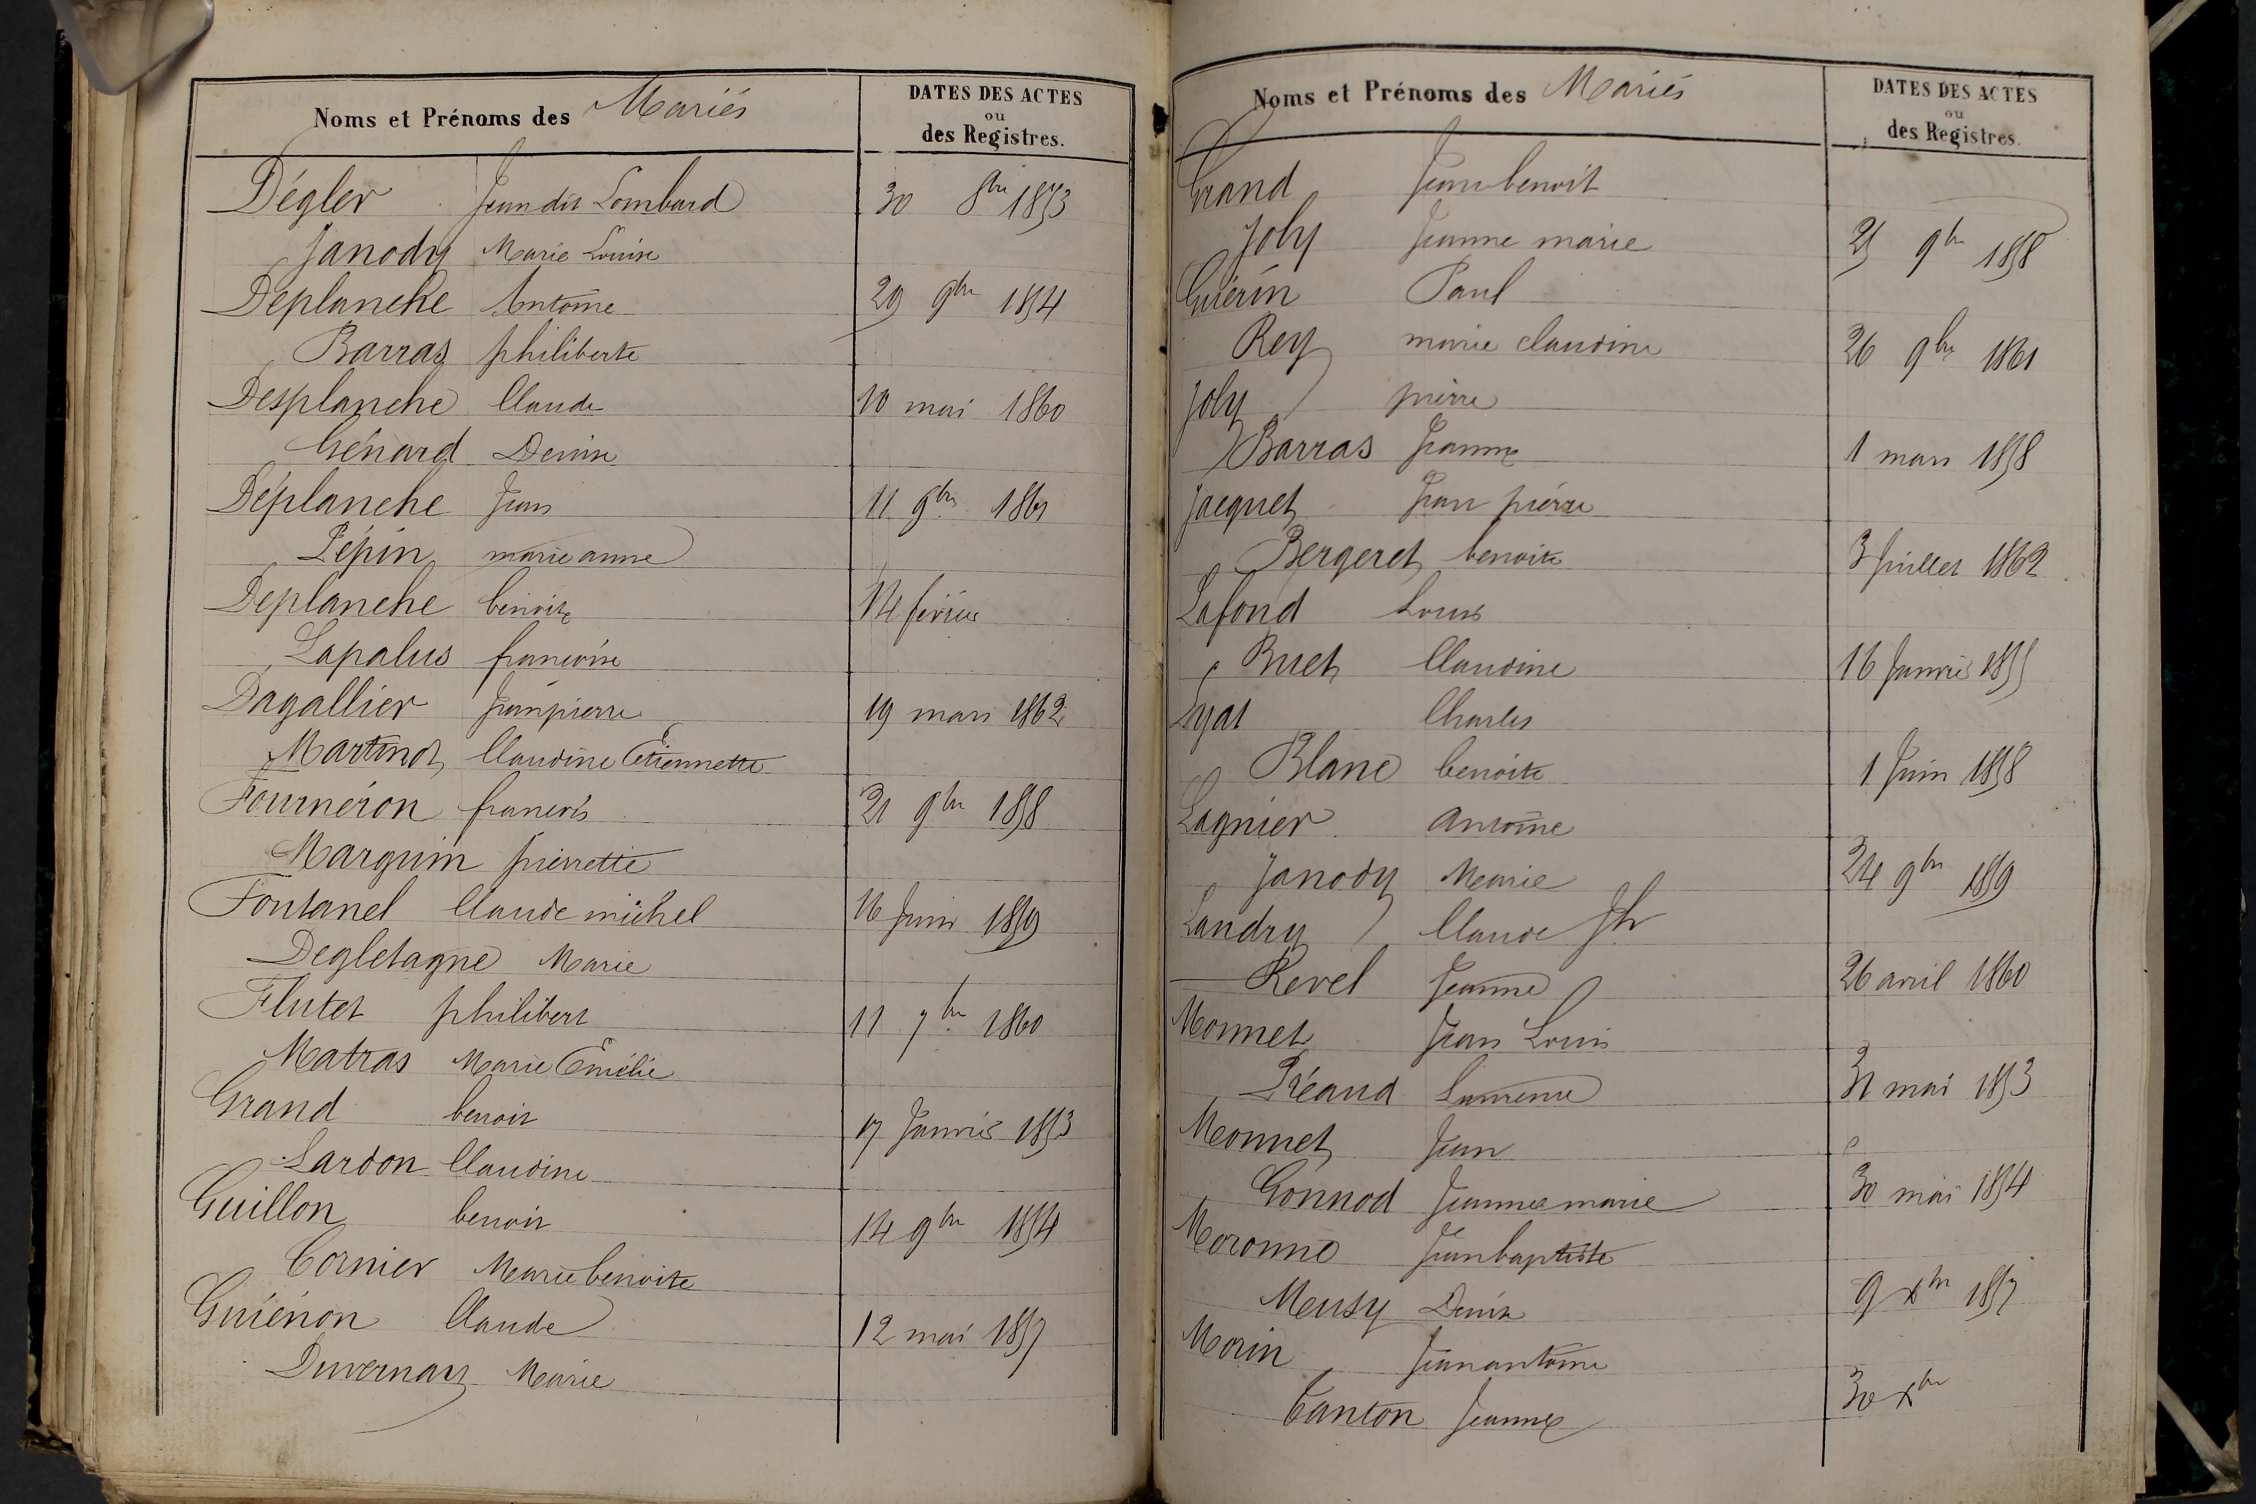 Noms et Prénoms des Mariés
DATES DES ACTES
ou
des Registres.
Dégler Jean dit Lombard 30 8bre 1853
Janody Marie Louise
Déplanche Antoine 29 9bre 1854
Barras philiberte
Desplanche Claude 10 mai 1860
Génard Denise
Déplanche Jean 11 9bre 1861
Pépin marie anne
Deplanche benoite 14 février
Lapalus francoise
Dagallier Jean pierre 19 mars 1862
Martinot Claudine Etiennette
Fournéron francois 21 9bre 1858
Marguin pierrette
Fontanel Claude michel 16 Juin 1859
Degletagne Marie
Flutet philibert 11 7bre 1860
Matras Marie Emélie
Grand benoit 17 Janvier 1853
Lardon Claudine
Guillon benoit 14 9bre 1854
Cornier Marie benoite
Guénon Claude 12 mai 1857
Duvernay Marie
Noms et Prénoms des Mariés
DATES DES ACTES
ou
des Registres.
Grand Jean benoit
Joly Jeanne marie 25 9bre 1858
Guérin Paul
Rey marie claudine 26 9bre 1861
Joly pierre
Barras Jeanne 1 mars 1858
Jacquet Jean pierre
Bergeret benoite 3 Juillet 1862
Lafond Louis
Buet Claudine 16 Janvier 1855
Lyat Charles
Blanc benoite 1 Juin 1858
Lagnier antoine
Janody Marie 24 9bre 1859
Landry Claude Jh
Revel Jeanne 26 avril 1860
Monnet Jean Louis
Préaud Laurence 31 mai 1853
Monnet Jean
Gonnod Jeanne marie 30 mai 1854
Moronno Jean baptiste
Meusy Denise 9 Xbre 1857
Morin Jean antoine
Canton Jeanne 30 Xbre